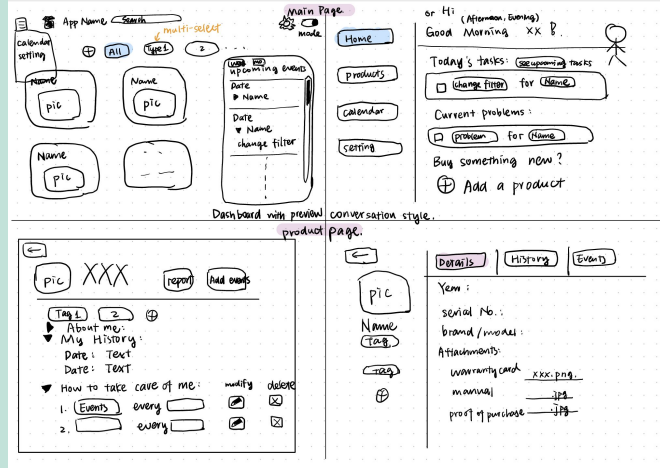 Main Page
App Name Search
multi-select
mode
calendar
setting
All Type 1 2 ....
Name
pic
Name
pic
Name
pic
upcoming events
Date
Name
Date
Name
change filter
Home
products
calendar
setting
or Hi
(Afternoon, Evening)
Good Morning XX
Today's tasks: see upcoming tasks
change filter for Name
Current problems:
problem for Name
Buy something new?
Add a product
Dashboard with preview
conversation style.
product page.
pic XXX report Add events
Tag 1 2
About me:
My History:
Date: Text
Date: Text
How to take care of me: modify delete
1. Events every
2. every
pic
Name
Tag
Tag
Details History Events
Year:
serial No.:
brand/model:
Attachments:
warranty card xxx.png.
manual .jpg
proof of purchase .jpg